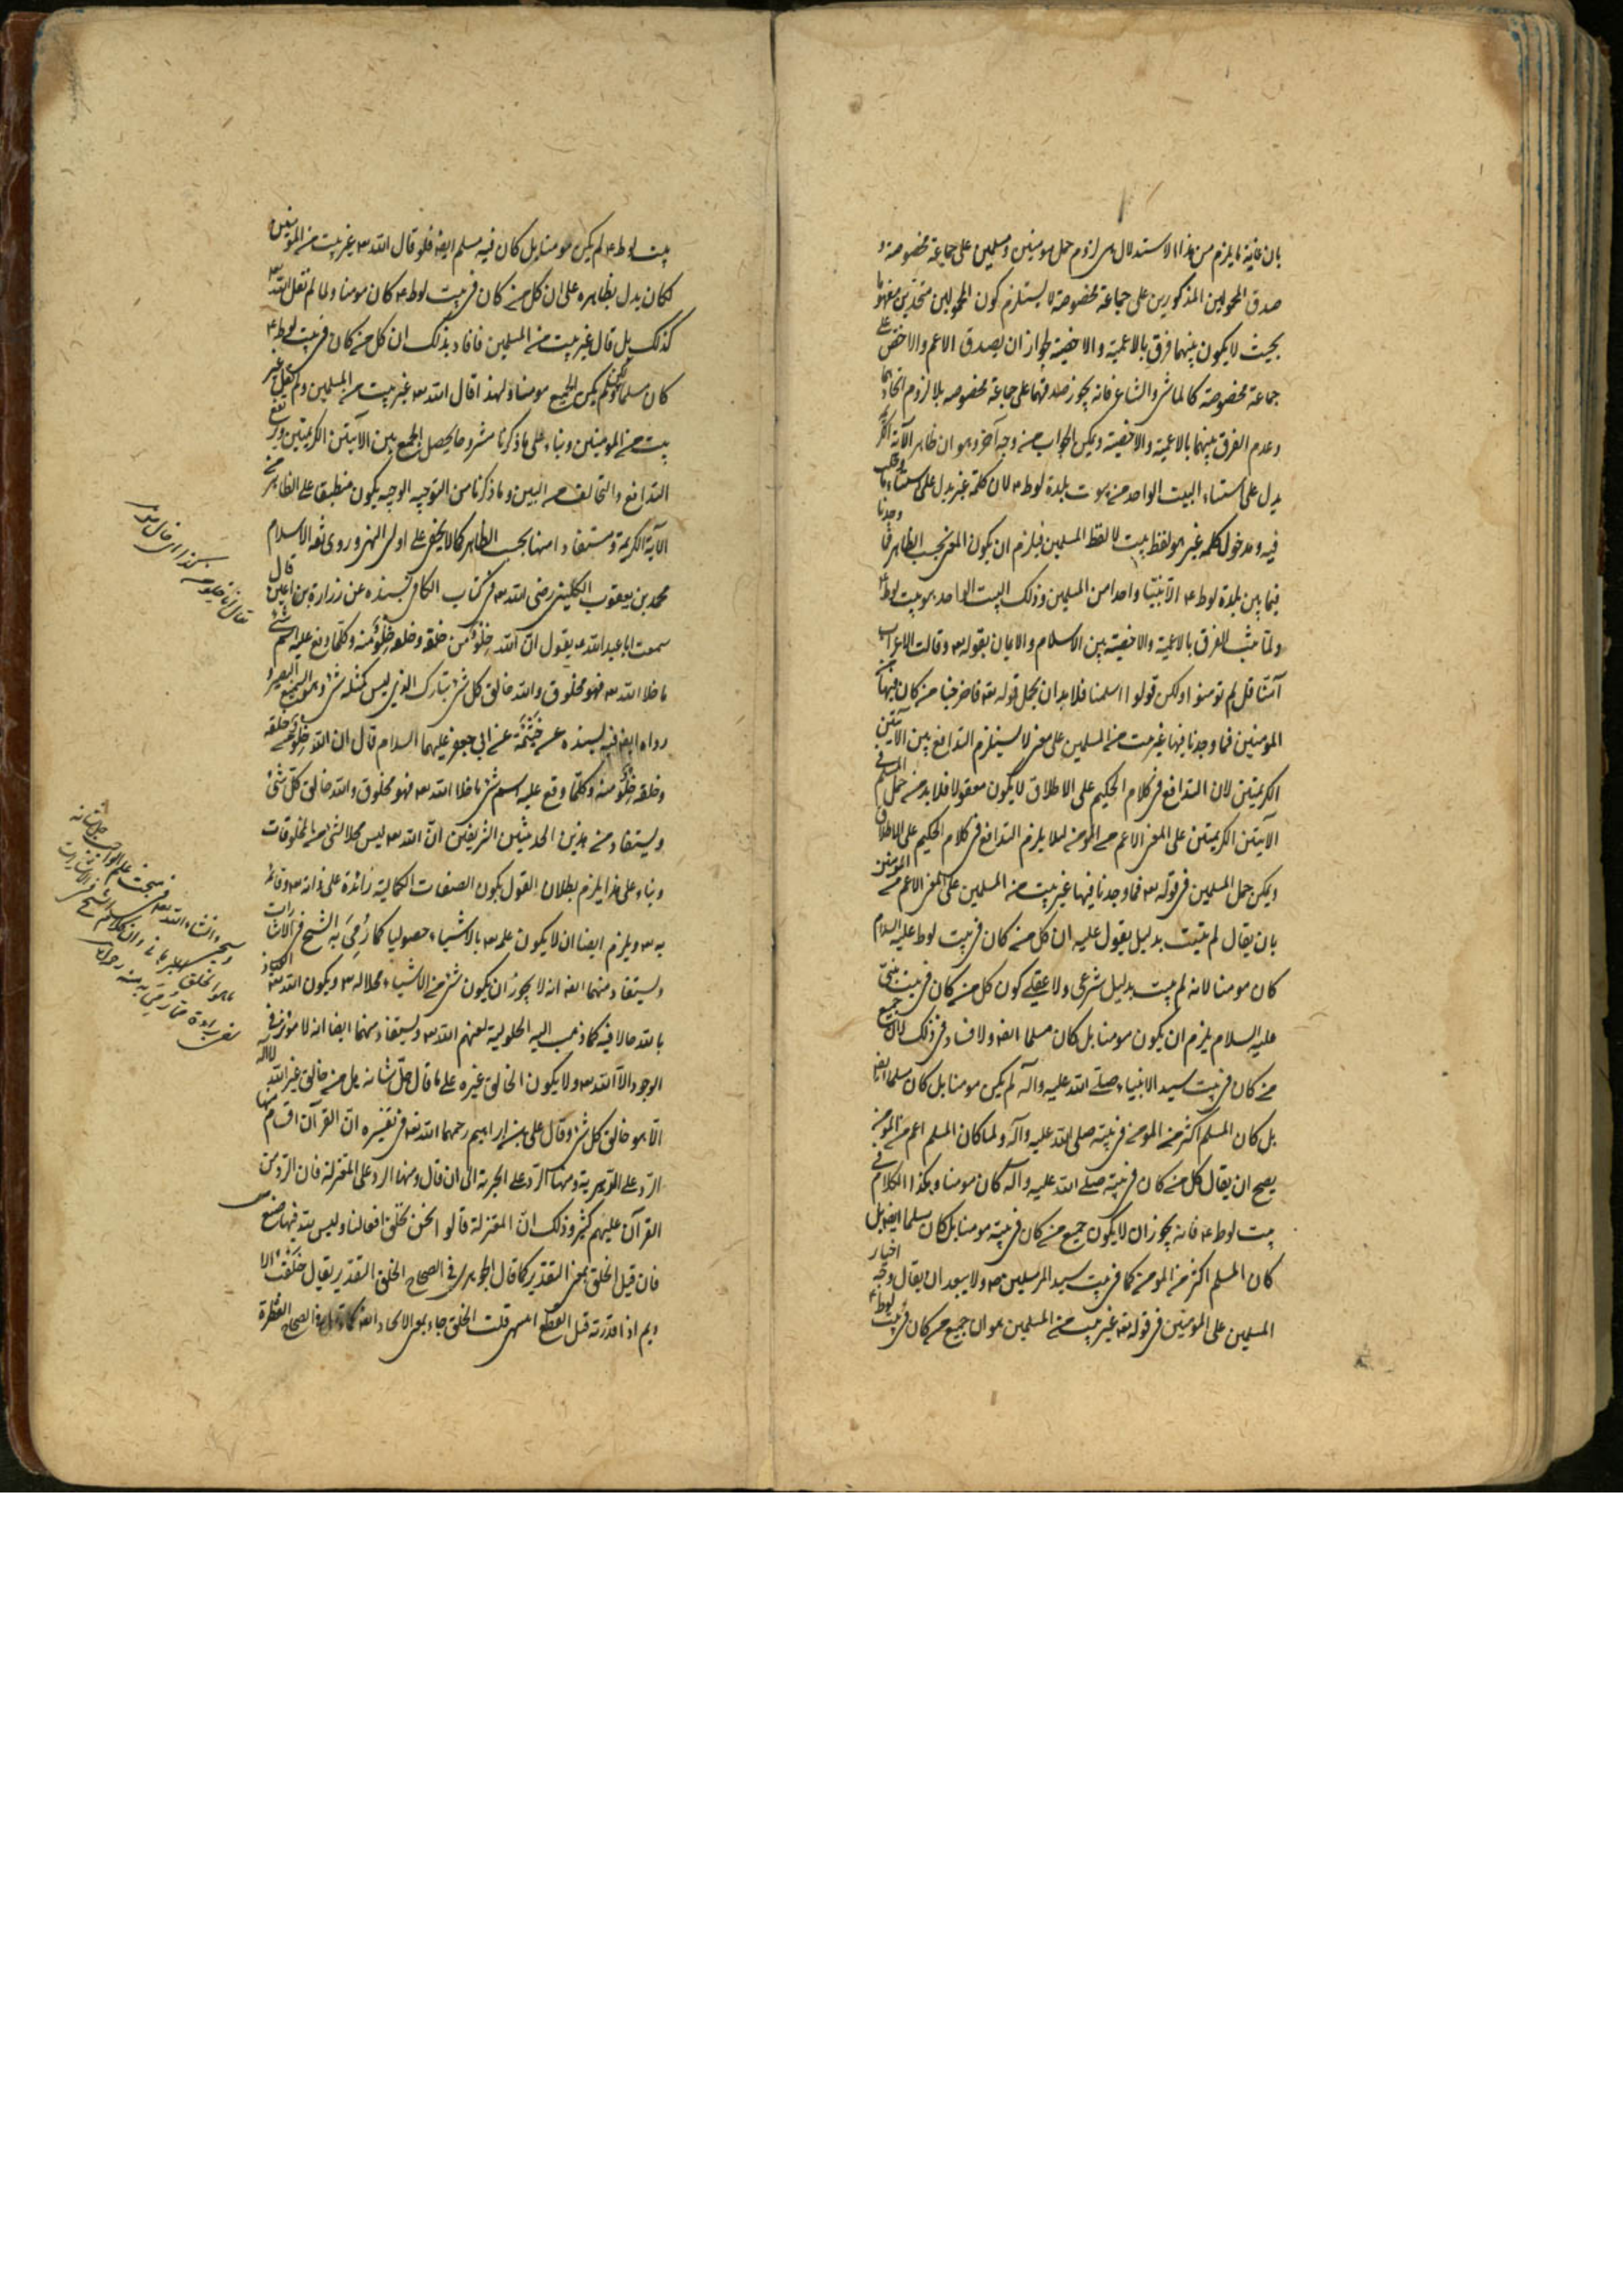 بان غاية ما يلزم من هذا الاستدلال هى لزوم حمل مومنين ومسلمين على جماعة مخصوصة و
صدق المحمولين المذكورين على جماعة مخصوصة لا يستلزم كون المحمولين متحدين مفهوما
بحيث لا يكون بينهما فرق بالاعمية والاخصية لجواز ان يصدق الاعم والاخص على
جماعة مخصوصة كالماشى والشاعر فانه يجوز صدقهما على جماعة مخصوصه بلا لزوم اتحادهما
وعدم الفرق بينهما بالاعمية والاخصية ويمكن الجواب من وجه آخر وهو ان ظاهر الآية الكريمة
يدل على استثناء البيت الواحد من بيوت بلدة لوط ع لان كلمة غير يدل على استثناء
فيه ومدخول كلمة غير هو لفظ بيت لا لفظ المسلمين فيلزم ان يكون المعنى بحسب الظاهر فما وجدنا
فيما بين بلدة لوط ع الا بيتا واحدا من المسلمين وذلك البيت الواحد هو بيت لوط ع
ولما ثبت الفرق بالاعمية والاخصية بين الاسلام والايمان بقوله تع وقالت الاعراب
آمنا قل لم تومنوا ولكن قولوا اسلمنا فلا بد ان يحمل قوله تعه فاخرجنا من كان فيها من
المومنين فما وجدنا فيها غير بيت من المسلمين على معنى لا يستلزم التدافع بين الآيتين
الكريمتين لان التدافع فى كلام الحكيم على الاطلاق لا يكون معقولا فلا بد من حمل المسلم فى
الآيتين الكريمتين على المعنى الاعم من المومن ليلا يلزم التدافع فى كلام الحكيم على الاطلاق
ويمكن حمل المسلمين فى قوله تع فما وجدنا فيها غير بيت من المسلمين على المعنى الاعم من المومنين
بان يقال لم يثبت بدليل يقول عليه ان كل من كان فى بيت لوط عليه السلام
كان مومنا لانه لم يثبت بدليل شرعى ولا عقلى كون كل من كان فى بيت نبى
عليه السلام يلزم ان يكون مومنا بل كان مسلما ايضه ولا فساد فى ذلك لان جميع
من كان فى بيت سيد الانبياء صلى الله عليه وآله لم يكن مومنا بل كان مسلما ايضه
بل كان المسلم اكثر من المومن فى بيته صلى الله عليه وآله ولما كان المسلم اعم من المومن
يصح ان يقال كل من كان فى بيته صلى الله عليه وآله كان مومنا وهكذا الكلام فى
بيت لوط ع فانه يجوز ان لا يكون جميع من كان فى بيته مومنا بل كان مسلما ايضه بل
كان المسلم اكثر من المومن كما فى بيت سيد المرسلين ص ولا يبعد ان يقال وجه اختيار
المسلمين على المومنين فى قوله تعه غير بيت من المسلمين هو ان جميع من كان فى بيت لوط ع
بيت لوط ع لم يكن مومنا بل كان فيه مسلم ايضه فلو قال الله تع غير بيت من المومنين
لكان يدل بظاهره على ان كل من كان فى بيت لوط ع كان مومنا ولما لم يقل الله تع
كذلك بل قال غير بيت من المسلمين فافاد بذلك ان كل من كان فى بيت لوط ع
كان مسلما ولم يكن الجميع مومنا ولهذا قال الله تع غير بيت من المسلمين ولم يقل غير
بيت من المومنين وبناء على ما ذكرنا مشروحا يحصل الجمع بين الآيتين الكريمتين ويرتفع
التدافع والتخالف من البين وما ذكرنا من التوجيه الوجيه يكون منطبقا على الظاهر من
الآية الكريمة ومستفادا منها بحسب الظاهر كما لا يخفى على اولى النهى وروى ثقة الاسلام
محمد بن يعقوب الكلينى رضى الله تع فى كتاب الكافى بسنده عن زرارة بن اعين قال
سمعت ابا عبد الله ع يقول ان الله خلو من خلقه وخلقه خلو منه وكلما وقع عليه اسم شئ
ما خلا الله تع فهو مخلوق والله خالق كل شئ تبارك الذى ليس كمثله شئ وهو السميع البصير و
رواه ايضه فيه بسنده عن خيثمة عن ابى جعفر عليهما السلام قال ان الله خلو من خلقه
وخلقه خلو منه وكلما وقع عليه اسم شئ ما خلا الله تع فهو مخلوق والله خالق كل شئ
ويستفاد من هذين الحديثين الشريفين ان الله تع ليس محلا لشئ من المخلوقات
وبناء على هذا يلزم بطلان القول بكون الصفات الكمالية زائدة على ذاته تع وقائمة
به تع ويلزم ايضا ان لا يكون علمه تع بالاشياء حصوليا كما رمى به الشيخ فى الاشارات
ويستفاد منهما ايضه انه لا يجوز ان يكون شئ من الاشياء محلا له تع ويكون الله تعه
حالا فيه كما ذهب اليه الحلولية لعنهم الله تع ويستفاد منهما ايضا انه لا موثر فى
الوجود الا الله تع ولا يكون الخالق غيره على ما قال جل شانه هل من خالق غير الله لا اله
الا هو خالق كل شئ وقال على بن ابراهيم رحمهما الله تعه فى تفسيره ان القرآن اقسام منها
الرد على القدرية ومنها الرد على الجبرية الى ان قال ومنها الرد على المعتزلة فان الرد من
القرآن عليهم كثير وذلك ان المعتزلة قالوا نحن نخلق افعالنا وليس لله فيها صنع
فان قيل الخلق بمعنى التقدير كما قال الجوهرى فى الصحاح الخلق التقدير يقال خلقت الا
ديم اذا قدرته قبل القطع انتهى قلت الخلق جاء بمعنى الايجاد ايضه كما قال فى الصحاح الفطرة